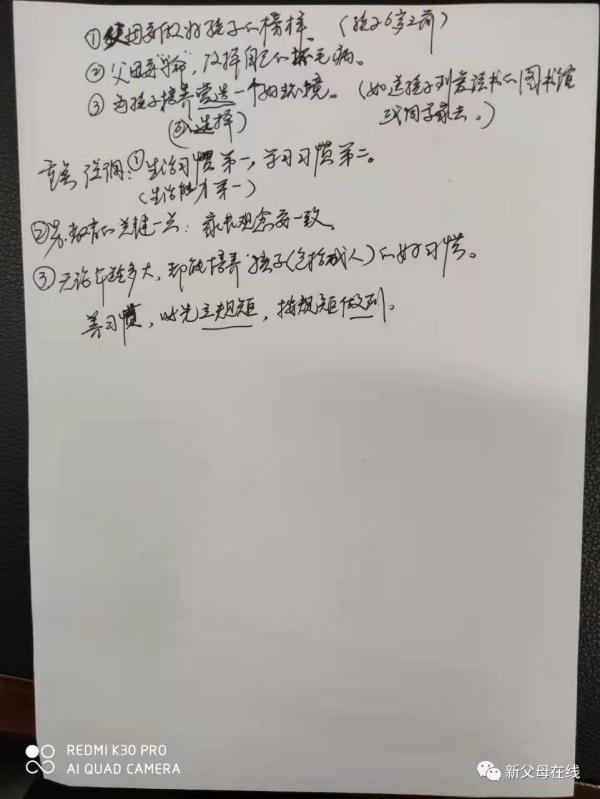 ①父母要做好孩子的榜样。(孩子6岁之前)
②父母要“革命”,改掉自己的坏毛病。
③为孩子培养营造一个好环境。(如送孩子到爱读书的图书馆
(或选择)
或同学家去。)
重点强调:①生活习惯第一,学习习惯第二。
(生活能力第一)
②教育的关键一点:家长观念要一致。
③无论年龄多大,都能培养孩子(包括成人)的好习惯。
养习惯,必先立规矩,按规矩做到。
REDMI K30 PRO
AI QUAD CAMERA
新父母在线